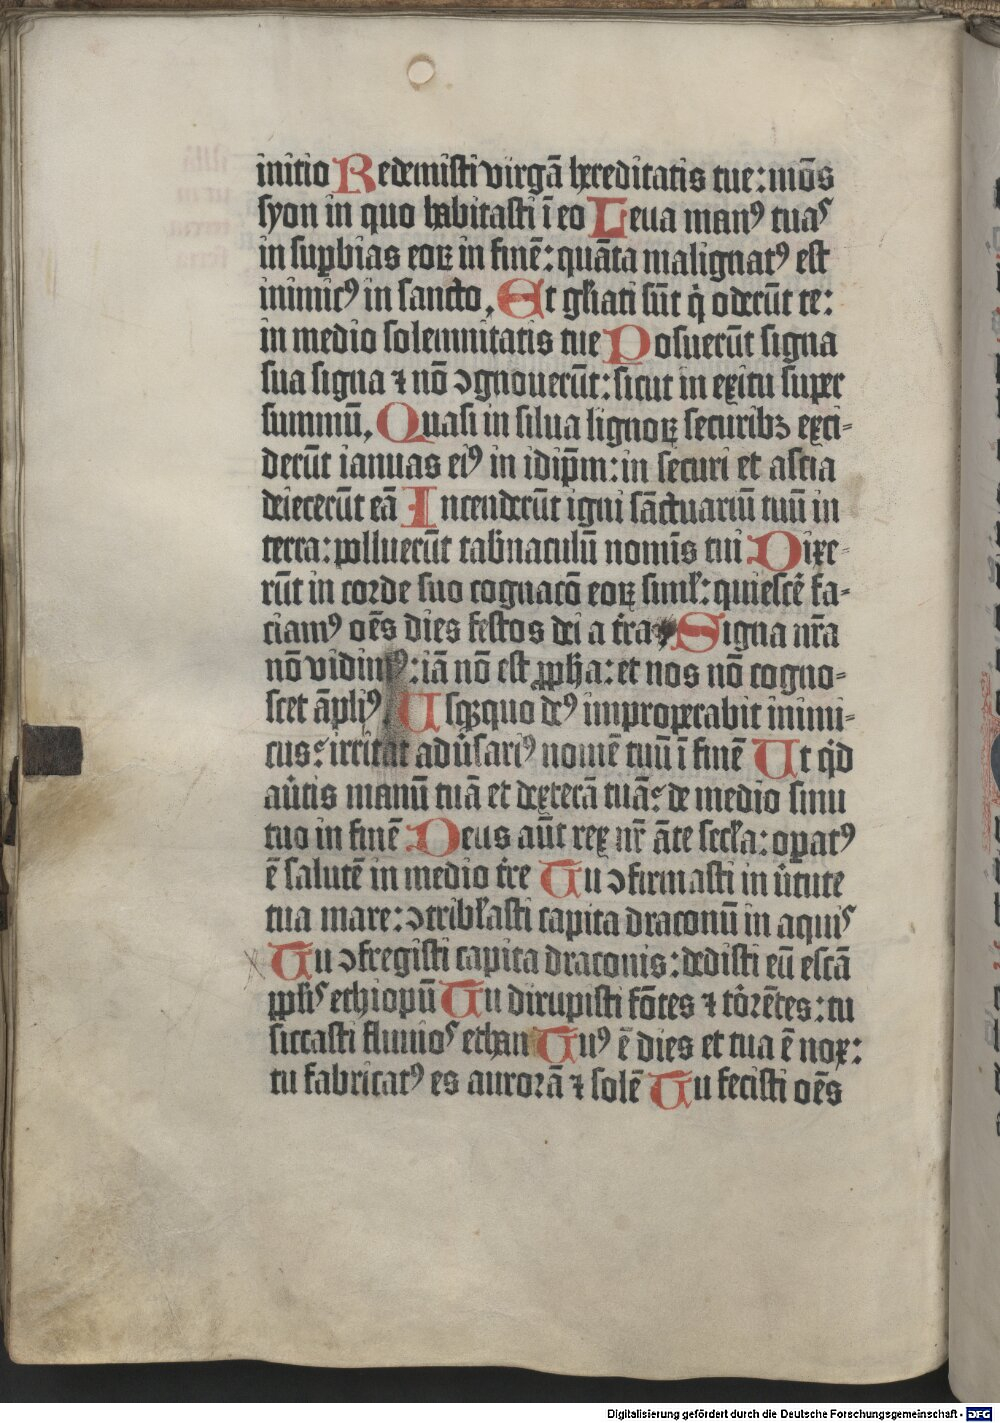 initio Redemisti virgā hereditatis tue: mōs
syon in quo habitasti ī eo Leua manꝯ tuas
in suꝑbias eoꝝ in finē: quāta malignatꝯ est
inimicꝯ in sancto, Et gl̄iati sūt q̇ oderūt te:
in medio solemnitatis tue Posuerūt signa
sua signa ⁊ nō ↄgnouerūt: sicut in exitu super
summū, Quasi in silua lignoꝝ securibꝫ exci-
derūt ianuas eiꝯ in idip̄m: in securi et ascia
deiecerūt eā Incenderūt igni sāctuariū tuū in
terra: polluerūt tab̓naculū nomīs tui Dixe-
rūt in corde suo cognacō eoꝝ simĺ: quiescē fa-
ciamꝯ oēs dies festos dei a t̓ra, Signa nr̄a
nō vidimꝯ: iā nō est ꝓph̄a: et nos nō cogno-
scet āpliꝯ, Usqꝫquo deꝯ improperabit inimi-
cus: irritat adu̓sariꝯ nomē tuū ī finē Ut qͥd
au̓tis manū tuā et dexterā tuā: de medio sinu
tuo in finē Deus aūt rex nr̄ āte secl̄a: oꝑatꝯ
ē salutē in medio t̓re Tu ↄfirmasti in u̓tute
tua mare: ↄtribl̓asti capita draconū in aquis
Tu ↄfregisti capita draconis: dedisti eū escā
ꝓpl̓is ethiopū Tu dirupisti fōtes ⁊ tôrētes: tu
siccasti fluuios ethan Tuꝯ ē dies et tua ē nox:
tu fabricatꝯ es aurorā ⁊ solē Tu fecisti oēs
Digitalisierung gefördert durch die Deutsche Forschungsgemeinschaft - DFG